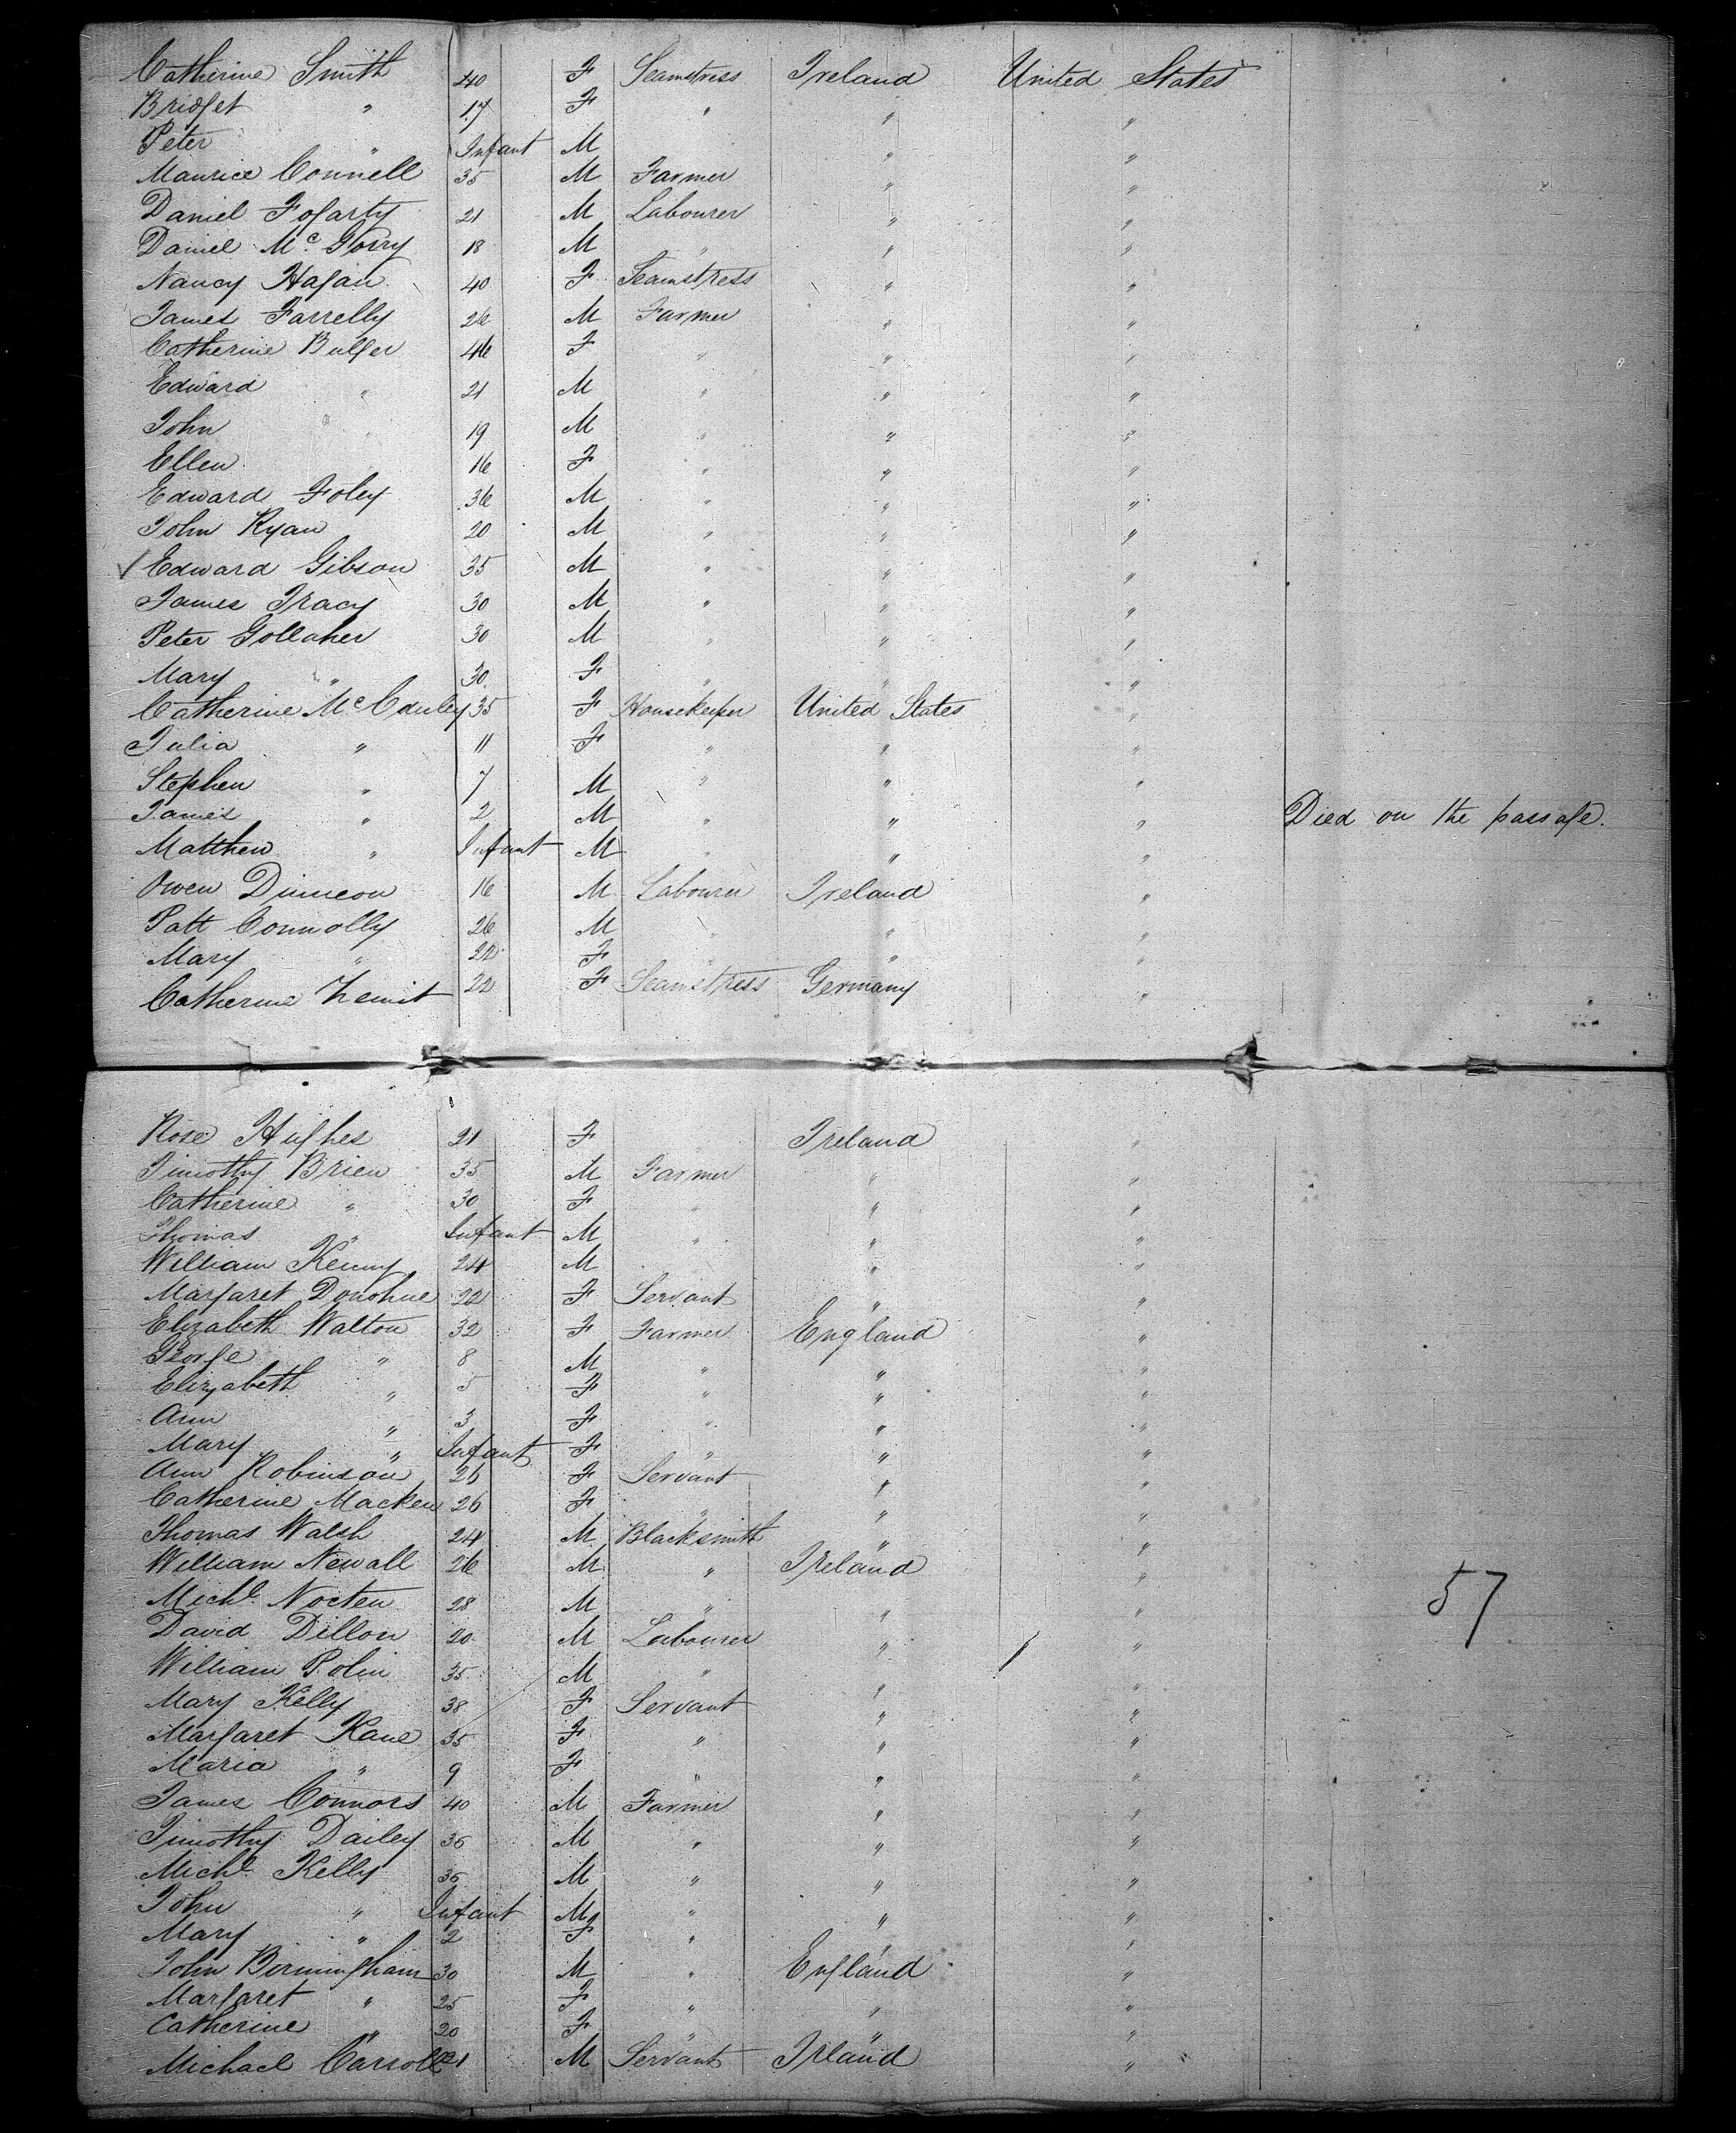 Catherine Smith 40 F Seamstress Ireland United States
Bridget " 17 F " " "
Peter " Infant M " "
Maurice Connell 35 M Farmer " "
Daniel Fogarty 21 M Labourer " "
Daniel Mc Gorry 18 M " " "
Nancy Hagan 40 F Seamstress " "
James Farrelly 26 M Farmer " "
Catherine Bulger 46 F " " "
Edward " 21 M " " "
John " 19 M " " "
Ellen 16 F " " "
Edward Foley 36 M " " "
John Ryan 20 M " " "
✓ Edward Gibson 35 M " " "
James Tracy 30 M " " "
Peter Gollaher 30 M " " "
Mary " 30 F " " "
Catherine Mc Cauley 35 F Housekeeper United States "
Julia " 11 F " " "
Stephen " 7 M " " "
James " 2 M " " " Died on the passage.
Matthew " Infant M " " "
Owen Dinneon 16 M Labourer Ireland "
Patt Connolly 26 M " " "
Mary " 22 F " " "
Catherine 22 F Seamstress Germany "
Rose Hughes 21 F Ireland "
Timothy Brien 35 M Farmer " "
Catherine " 30 F " " "
Thomas " Infant M " " "
William Kenny 24 M " "
Margaret Donohue 22 F Servant " "
Elizabeth Walton 32 F Farmer England "
George " 8 M " " "
Elizabeth " 5 F " " "
Ann " 3 F " " "
Mary " Infant F " " "
Ann Robinson 26 F Servant " "
Catherine Macken 26 F " " "
Thomas Walsh 24 M Blacksmith " "
William Newall 26 M " Ireland "
Michl. Nocten 28 M " " "
David Dillon 20 M Labourer " "
57
William Polin 35 M " " "
Mary Kelly 38 F Servant " "
Margaret Kane 35 F " " "
Maria " 9 F " " "
James Connors 40 M Farmer " "
Timothy Dailey 36 M " " "
Michl. Kelly 36 M " " "
John " Infant M " " "
Mary " 2 F " " "
John Bermingham 30 M " England "
Margaret " 25 F " " "
Catherine " 20 F " " "
Michael Carroll 21 M Servant Irland "